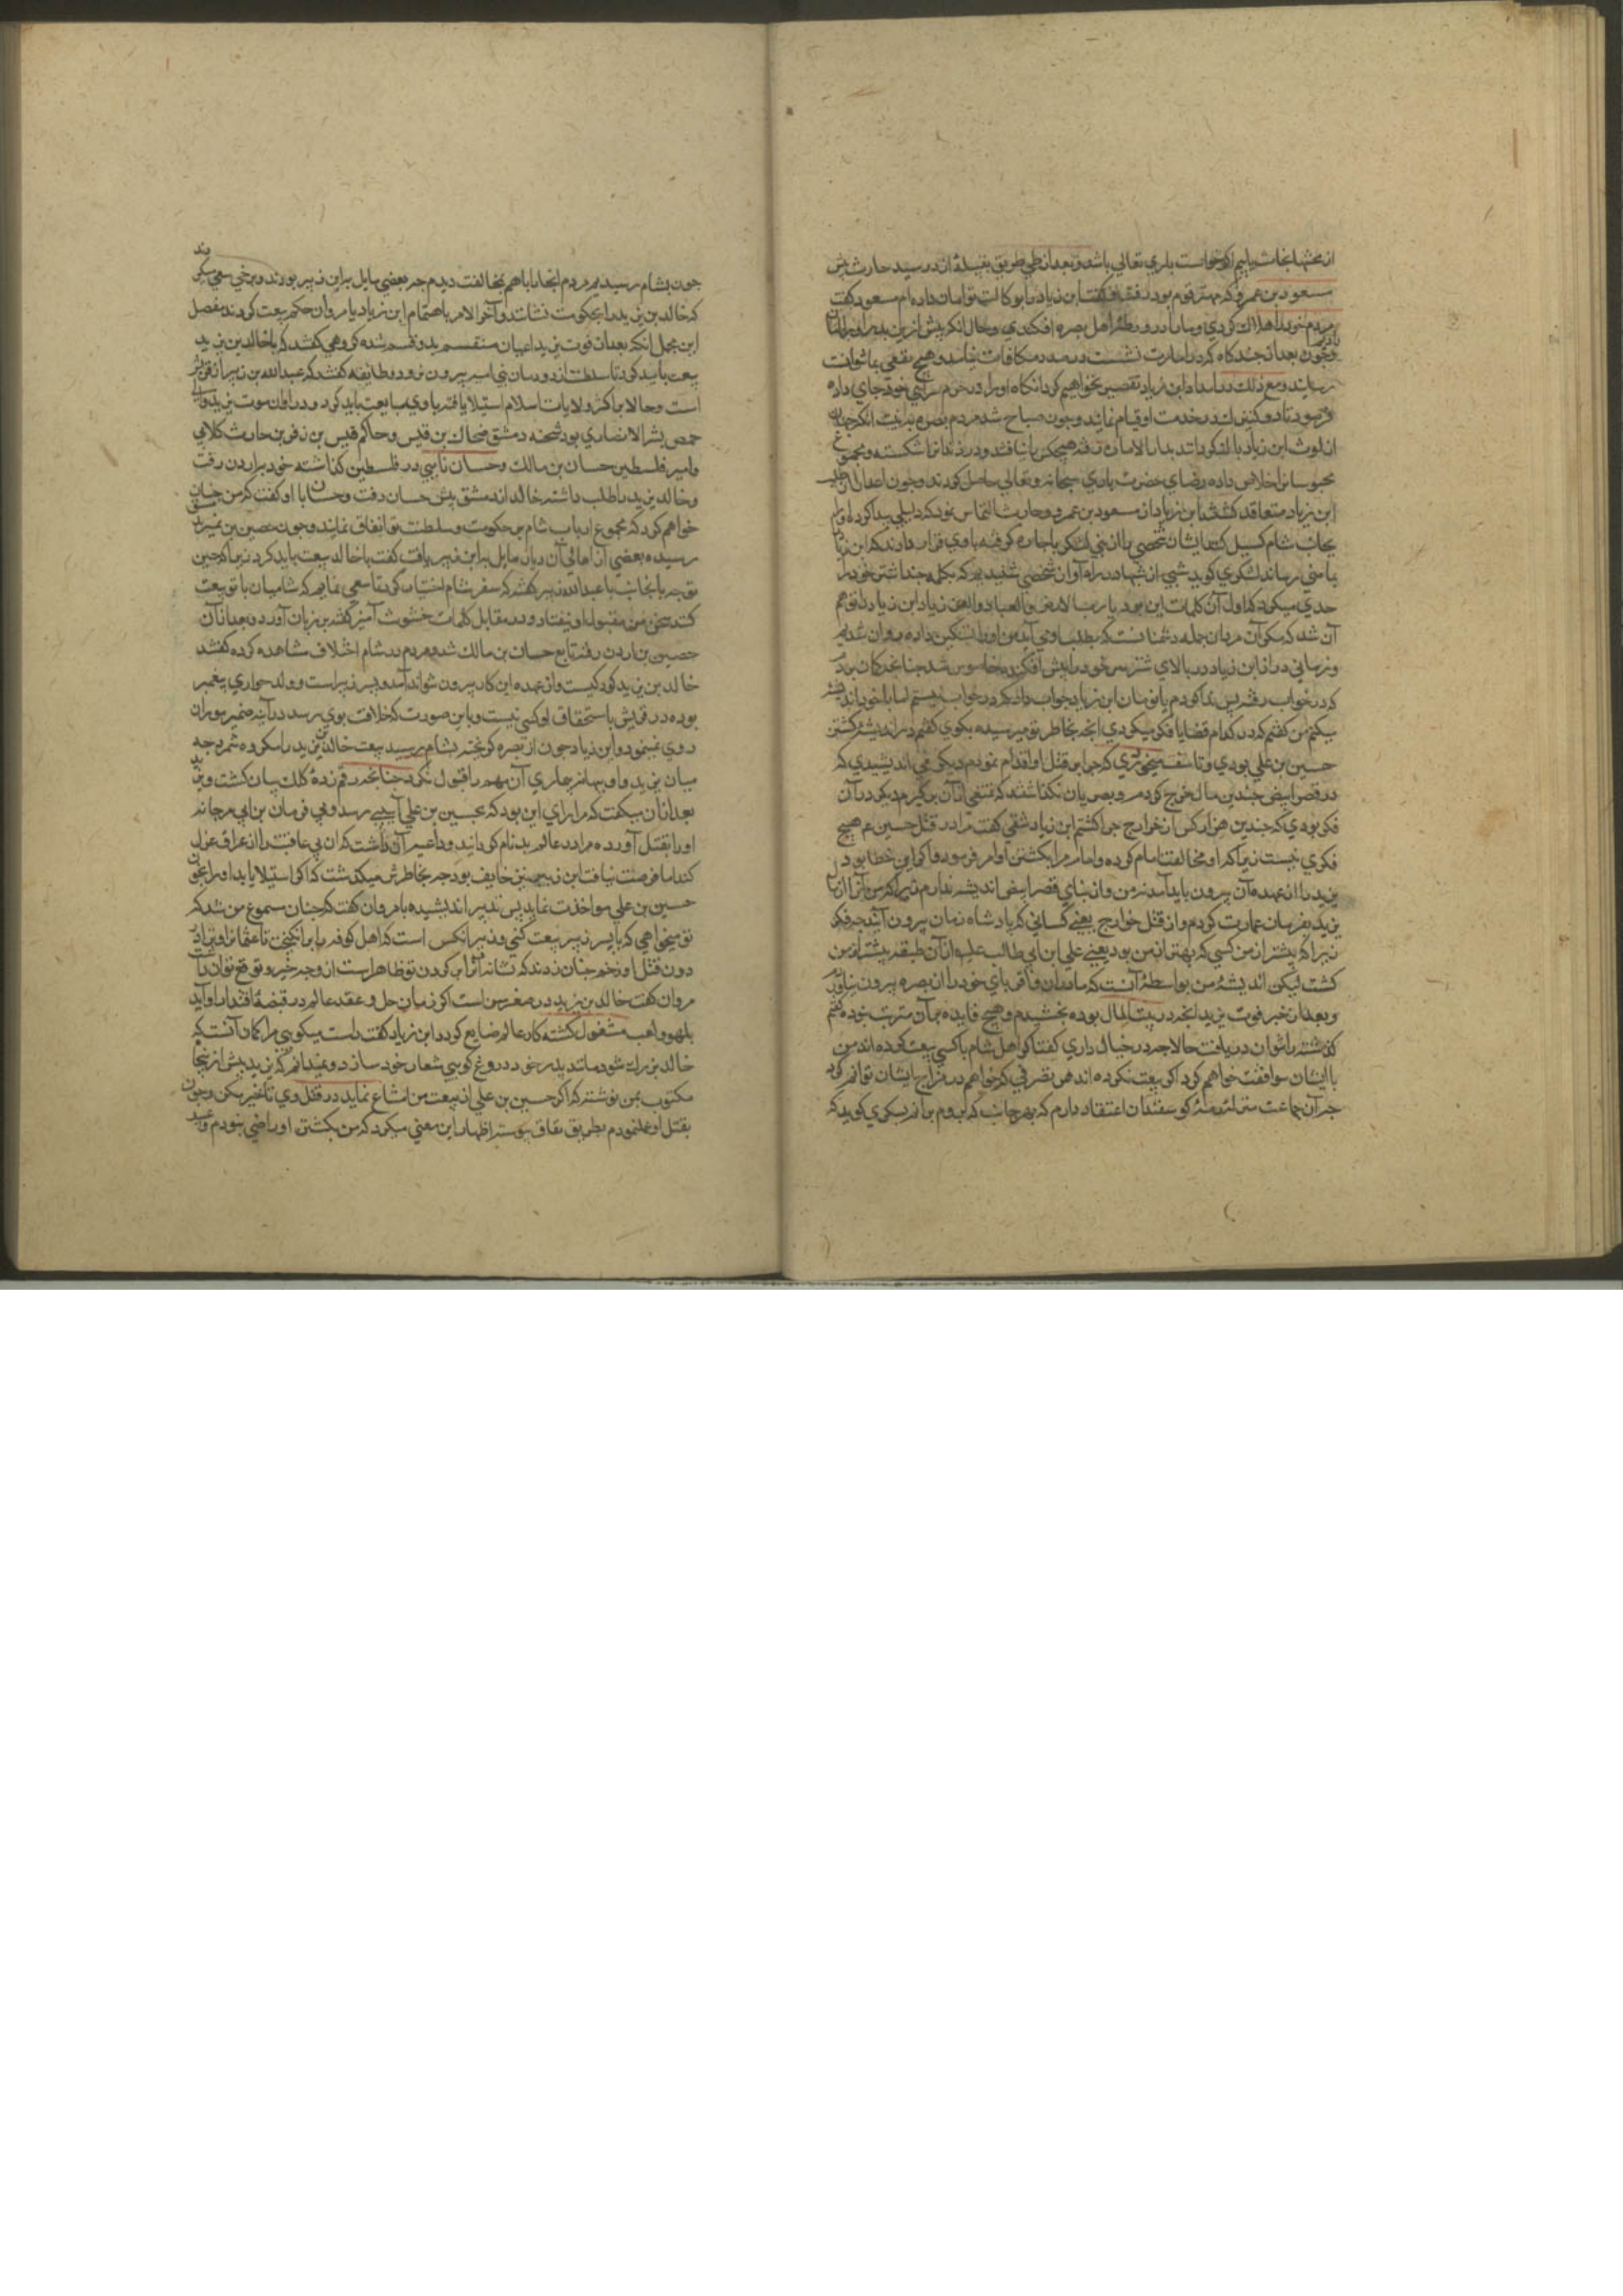 از محنتها نجات یابیم اکر خواست باری تعالی باشد و بعد از طی طریق بقبیله ازد رسید حارث پیش
مسعود بن عمرو که مهتر قوم بود رفته و کفت ابن زیاد را بوکالت تو امان داده ام مسعود کفت
مردم خود را هلاک کردی و ما را در ورطه اهل بصره افکندی و حال آنکه پیش ازین پدر او را امان
و چون بعد از چند کاه که در امارت نشست در صدد مکافات نیامد و هیچ نفعی بما نتوانست
رسانید و مع ذلک در امداد ابن زیاد تقصیر نخواهیم کرد آنکاه او را در حرم سرای خود جای داده
فرمود تا دو کنیزک در خدمت او قیام نمایند و چون صباح شد مردم بصره
ابن زیاد دار الاماره رفته هیچکس را نیافتند و در زندانرا شکسته و مجموع
محبوسانرا خلاص داده رضای حضرت باری سبحانه و تعالی حاصل کردند و چون
ابن زیاد متعاقد کشتند ابن زیاد از مسعود بن عمرو و حارث التماس نمود که دلیلی پیدا کرده او را
بجانب شام کسیل کنند ایشان شخصی را از بنی یشکر باجاره کرفته با وی قرار دادند که ابن زیاد
بمامنی رساند یشکری کوید شبی از شبها در راه از آن شخص شنیدیم که
حدی میکرد که اول آن کلمات این بود یا رب الارض و العباد و العن زیاد ابن زیاد را توهم
آن شد که مکر آن مرد از جمله دشمنانست که بطلب وی آمده من او را تسکین داده روان شدیم
و زمانی دراز ابن زیاد در بالای شتر سر خود را پیش افکنده خاموش شد چنانکه کمان بود
که در خواب رفته پس ندا کردم یا نومان ابن زیاد جواب داد که در خواب نیستم اما با خود اندیشه
میکنم من کفتم که در کدام قضایا فکر میکردی آنچه بخاطر تو میرسیده بکوی کفتم در اندیشه کشتن
حسین بن علی بودی و تاسف میخوردی که چرا بر قتل او اقدام نمودم دیکر می اندیشیدی که
در قصر ابیض چندین مال خرج کردم و بصریان نکذاشتند که تمتعی از آن برکیرم دیکر در آن
فکر بودی که چندین هزار کس از خوارج چرا کشتم ابن زیاد شقی کفت مرا در قتل حسین ع هیچ
فکری نیست زیرا که او مخالفت امام کرده و امام مرا بکشتن او امر فرمود و اکر این خطا بود
یزید را از عهده آن بیرون باید آمد نه من و از بنای قصر ابیض اندیشه ندارم زیرا که من آنرا از مال
یزید بفرمان عمارت کردم و از قتل خوارج یعنی کسانی که بر پادشاه زمان بیرون آیند چه فکر
زیرا که پیشتر از من کسی که بهتر از من بود یعنی علی ابن ابی طالب علیه از آن طبقه بیشتر از من
کشت لیکن اندیشه من بواسطه آنست که ما در آن و اقربای خود را از بصره بیرون نیاوردم
و بعد از خبر فوت یزید آنچه در بیت المال بوده بخشیدم و هیچ فایده بر آن مترتب نبوده کفتم
کذشته را نتوان دریافت حالا چه در خیال داری کفت اکر اهل شام با کسی بیعت کرده اند من
با ایشان موافقت خواهم کرد و اکر بیعت نکرده اند هر تصرفی که خواهم در مزاج ایشان توانم کرد
چه آن جماعت بمنزله رمه کوسفندان اعتقاد دارم که بهر جانب که برم بروند یشکری کوید که
چون بشام رسیدیم مردم انجا را با هم بمخالفت دیدم چه بعضی مایل بابن زبیر بودند و برخی سعی میکردند
که خالد بن یزید را بحکومت نشانند و آخر الامر باهتمام ابن زیاد با مروان حکم بیعت کردند مفصل
این مجمل آنکه بعد از فوت یزید اعیان منقسم بدو قسم شده کروهی کفتند که با خالد بن یزید
بیعت باید کرد تا سلطنت از دودمان بنی امیه بیرون نرود و طایفه کفتند که عبد الله بن زبیر
است و حالا بر اکثر ولایات اسلام استیلا یافته با وی مبایعت باید کرد و در اوان موت یزید والی
حمص بشر الانصاری بود شحنه دمشق ضحاک بن قیس و حاکم قیس بن زفر بن حارث کلابی
و امیر فلسطین حسان بن مالک و حسان نایبی در فلسطین کذاشته خود باردن رفت
و خالد بن یزید را طلب داشته خالد از دمشق پیش حسان رفت و حسان با او کفت که من چنان
خواهم کرد که مجموع ارباب شام بر حکومت و سلطنت تو اتفاق نمایند و چون حصین بن نمیر
رسیده بعضی از اهالی آن دیار مایل بابن زبیر یافت کفت با خالد بیعت باید کرد زیرا که حین
توجه باینجانب با عبد الله زبیر کفتم که سفر شام اختیار کن تا سعی نمایم که شامیان با تو بیعت
کنند سخن من مقبول او نیفتاد و در مقابل کلمات خشونت آمیز کفته بر زبان آورد و بعد از آن
حصین باردن رفته تابع حسان بن مالک شد و مردم در شام اختلاف مشاهده کرده کفتند
خالد بن یزید کودکیست و از عهده این کار بیرون نتواند آمد و پسر زبیر است و ولد حواری پیغمبر
بوده در قریش باستحقاق او کسی نیست و باین صورت که خلافت بوی رسد در آینه ضمیر مروان
روی نمینمود و ابن زیاد چون از بصره کریخته بشام رسید بیعت خالد بن یزید را مکروه شمرد چه
میان یزید و او بهانه جاری آن مهم را قبول نکرد چنانچه رقم زده کلک بیان کشت و یزید
بعد از آن میکفت که مرا رای این بود که بحسین بن علی آسیبی رسد و بی فرمان من ابن مرجانه
او را بقتل آورده مرا در عالم بدنام کردانید و داعیه آن داشت که ابن بی عاقبت را از عراق عزل
کند اما فرصت نیافت ابن زیاد خایف بود چه بخاطرش میکذشت که اکر استیلا یابد او را بخون
حسین بن علی مواخذت نماید پس تدبیر اندیشیده با مروان کفت که چنان مسموع من شد که
تو میخواهی که با پسر زبیر بیعت کنی و زبیر آنکس است که اهل کوفه را بر انکیخت تا عثمانرا
دون قتل او زخم چنان زدند که نشانه اثر آن بر کردن تو ظاهر است از وی چه خیر توقع توان داشت
مروان کفت خالد بن یزید در صغر سن است اکر زمان حل و عقد عالم در قبضه اقتدار او آید
بلهو و لعب مشغول کشته کار عالم ضایع کردد ابن زیاد کفت راست میکویی مرا کمان آنست که
خالد بزرک شود مانند پدر خود دروغ کویی شعار خود سازد و نمیدانم که یزید پیش ازینجا
مکتوب بمن نوشته که اکر حسین بن علی از بیعت من امتناع نماید در قتل وی تاخیر مکن و چون
بقتل او عمل نمودم بطریق نفاق پیوسته اظهار این معنی میکرد که من بکشتن او راضی نبودم